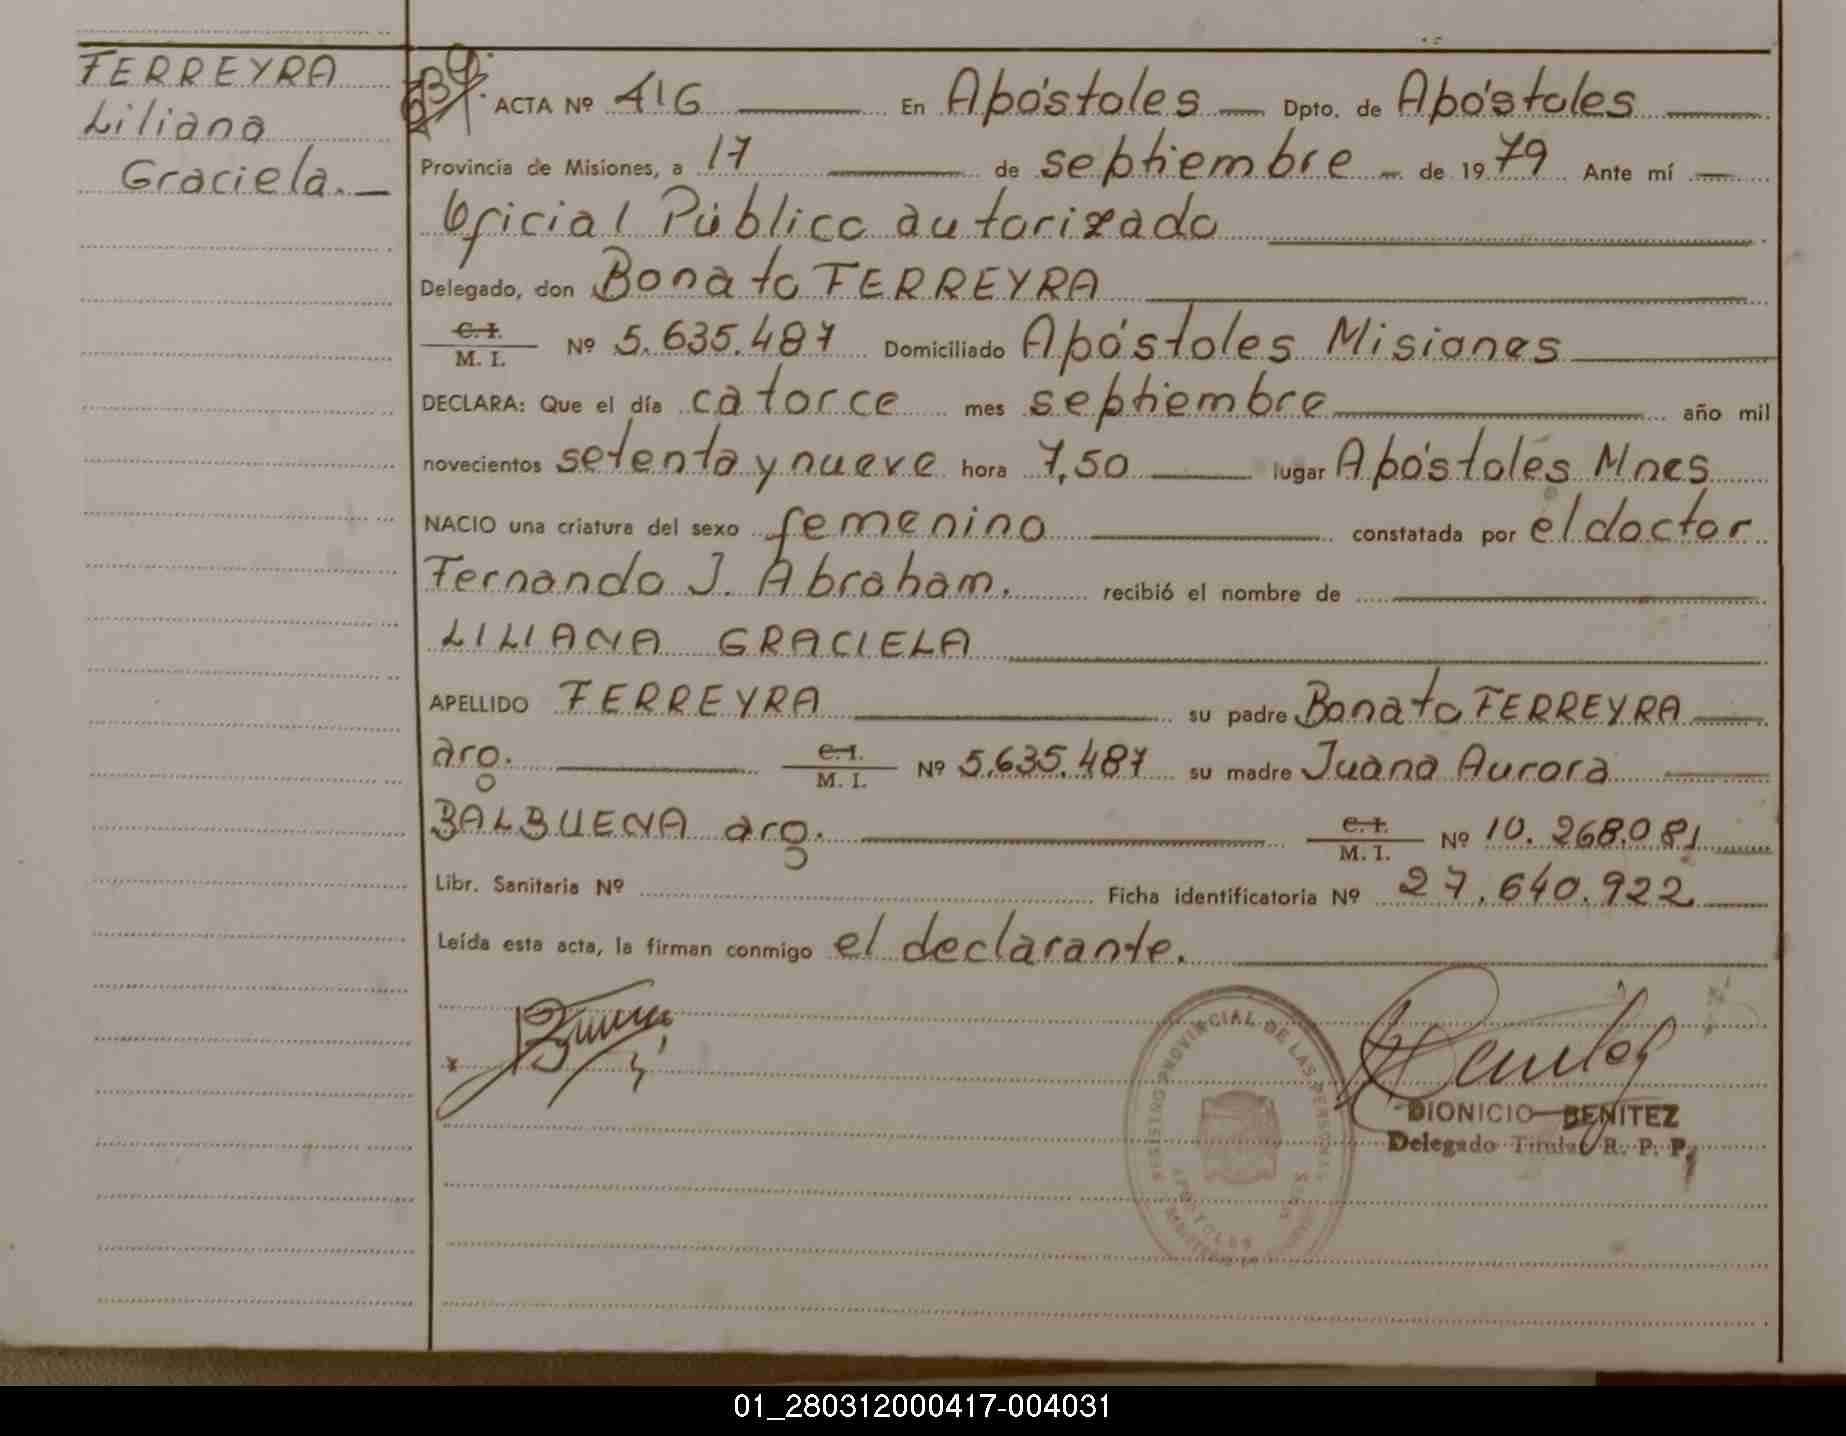 FERREYRA
Liliana
Graciela.
ACTA Nº 416 En Apóstoles Dpto. de Apóstoles
Provincia de Misiones, a 17 de septiembre de 1979 Ante mí
Oficial Público autorizado
Delegado, don Bonato FERREYRA
C.I.
M. I. Nº 5.635.487 Domiciliado Apóstoles Misiones
DECLARA: Que el día catorce mes septiembre año mil
novecientos setenta y nueve hora 7,50 lugar Apóstoles Mnes
NACIO una criatura del sexo femenino constatada por el doctor
Fernando J. Abraham. recibió el nombre de
LILIANA GRACIELA
APELLIDO FERREYRA su padre Bonato FERREYRA
arg. C.I. M. I. Nº 5.635.487 su madre Juana Aurora
BALBUENA arg. C.I. M. I. Nº 10.268.081
Libr. Sanitaria Nº Ficha identificatoria Nº 27.640.922
Leída esta acta, la firman conmigo el declarante.
REGISTRO PROVINCIAL DE LAS PERSONAS
APOSTOLES
DIONICIO BENITEZ
Delegado Titular R. P. P.
01_280312000417-004031